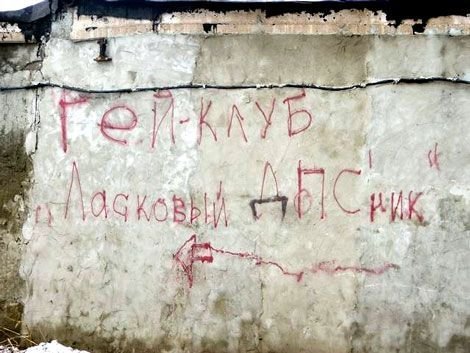 Гей-клуб
"Ласковый ДПСник"